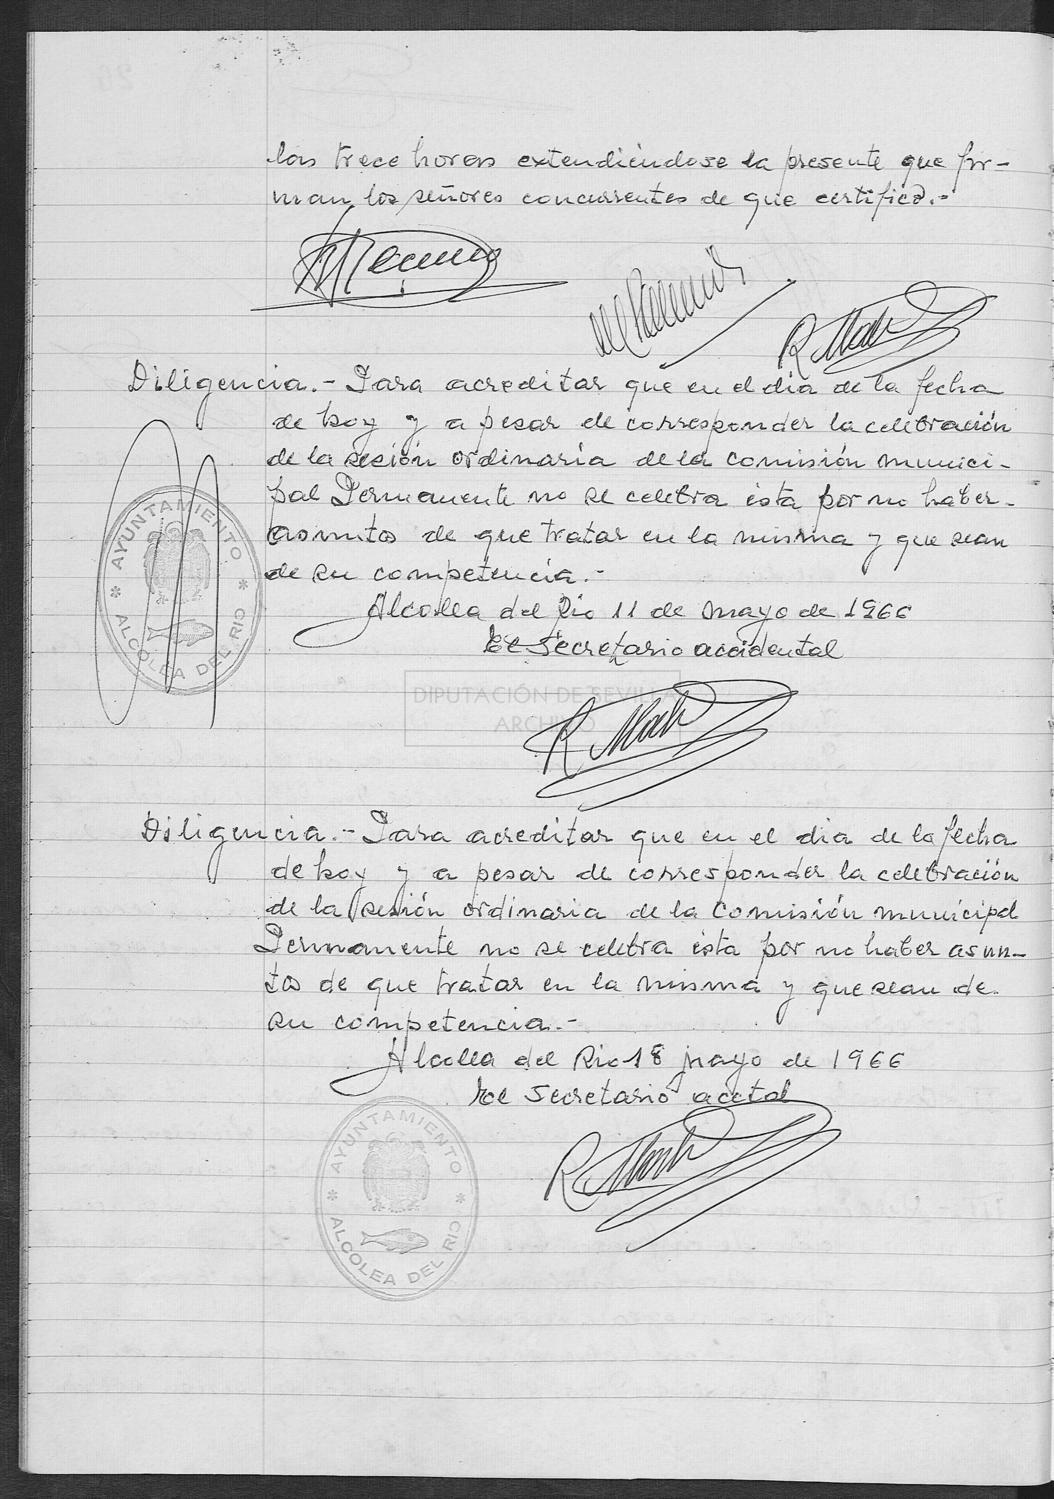 las trece horas extendiéndose la presente que fir-
man los señores concurrentes de que certifico.-
Diligencia.- Para acreditar que en el dia de la fecha
de hoy y a pesar de corresponder la celebración
de la sesión ordinaria de la comisión munici-
pal Permanente no se celebra ésta por no haber-
asuntos de que tratar en la misma y que sean
de su competencia.-
Alcolea del Rio 11 de mayo de 1966
El Secretario accidental
AYUNTAMIENTO
* ALCOLEA DEL RIO *
DIPUTACIÓN DE SEVILLA
ARCHIVO
Diligencia.- Para acreditar que en el dia de la fecha
de hoy y a pesar de corresponder la celebración
de la sesión ordinaria de la Comisión municipal
Permanente no se celebra ésta por no haber asun-
tos de que tratar en la misma y que sean de
su competencia.-
Alcolea del Rio 18 mayo de 1966
El Secretario acctal
AYUNTAMIENTO
* ALCOLEA DEL RIO *